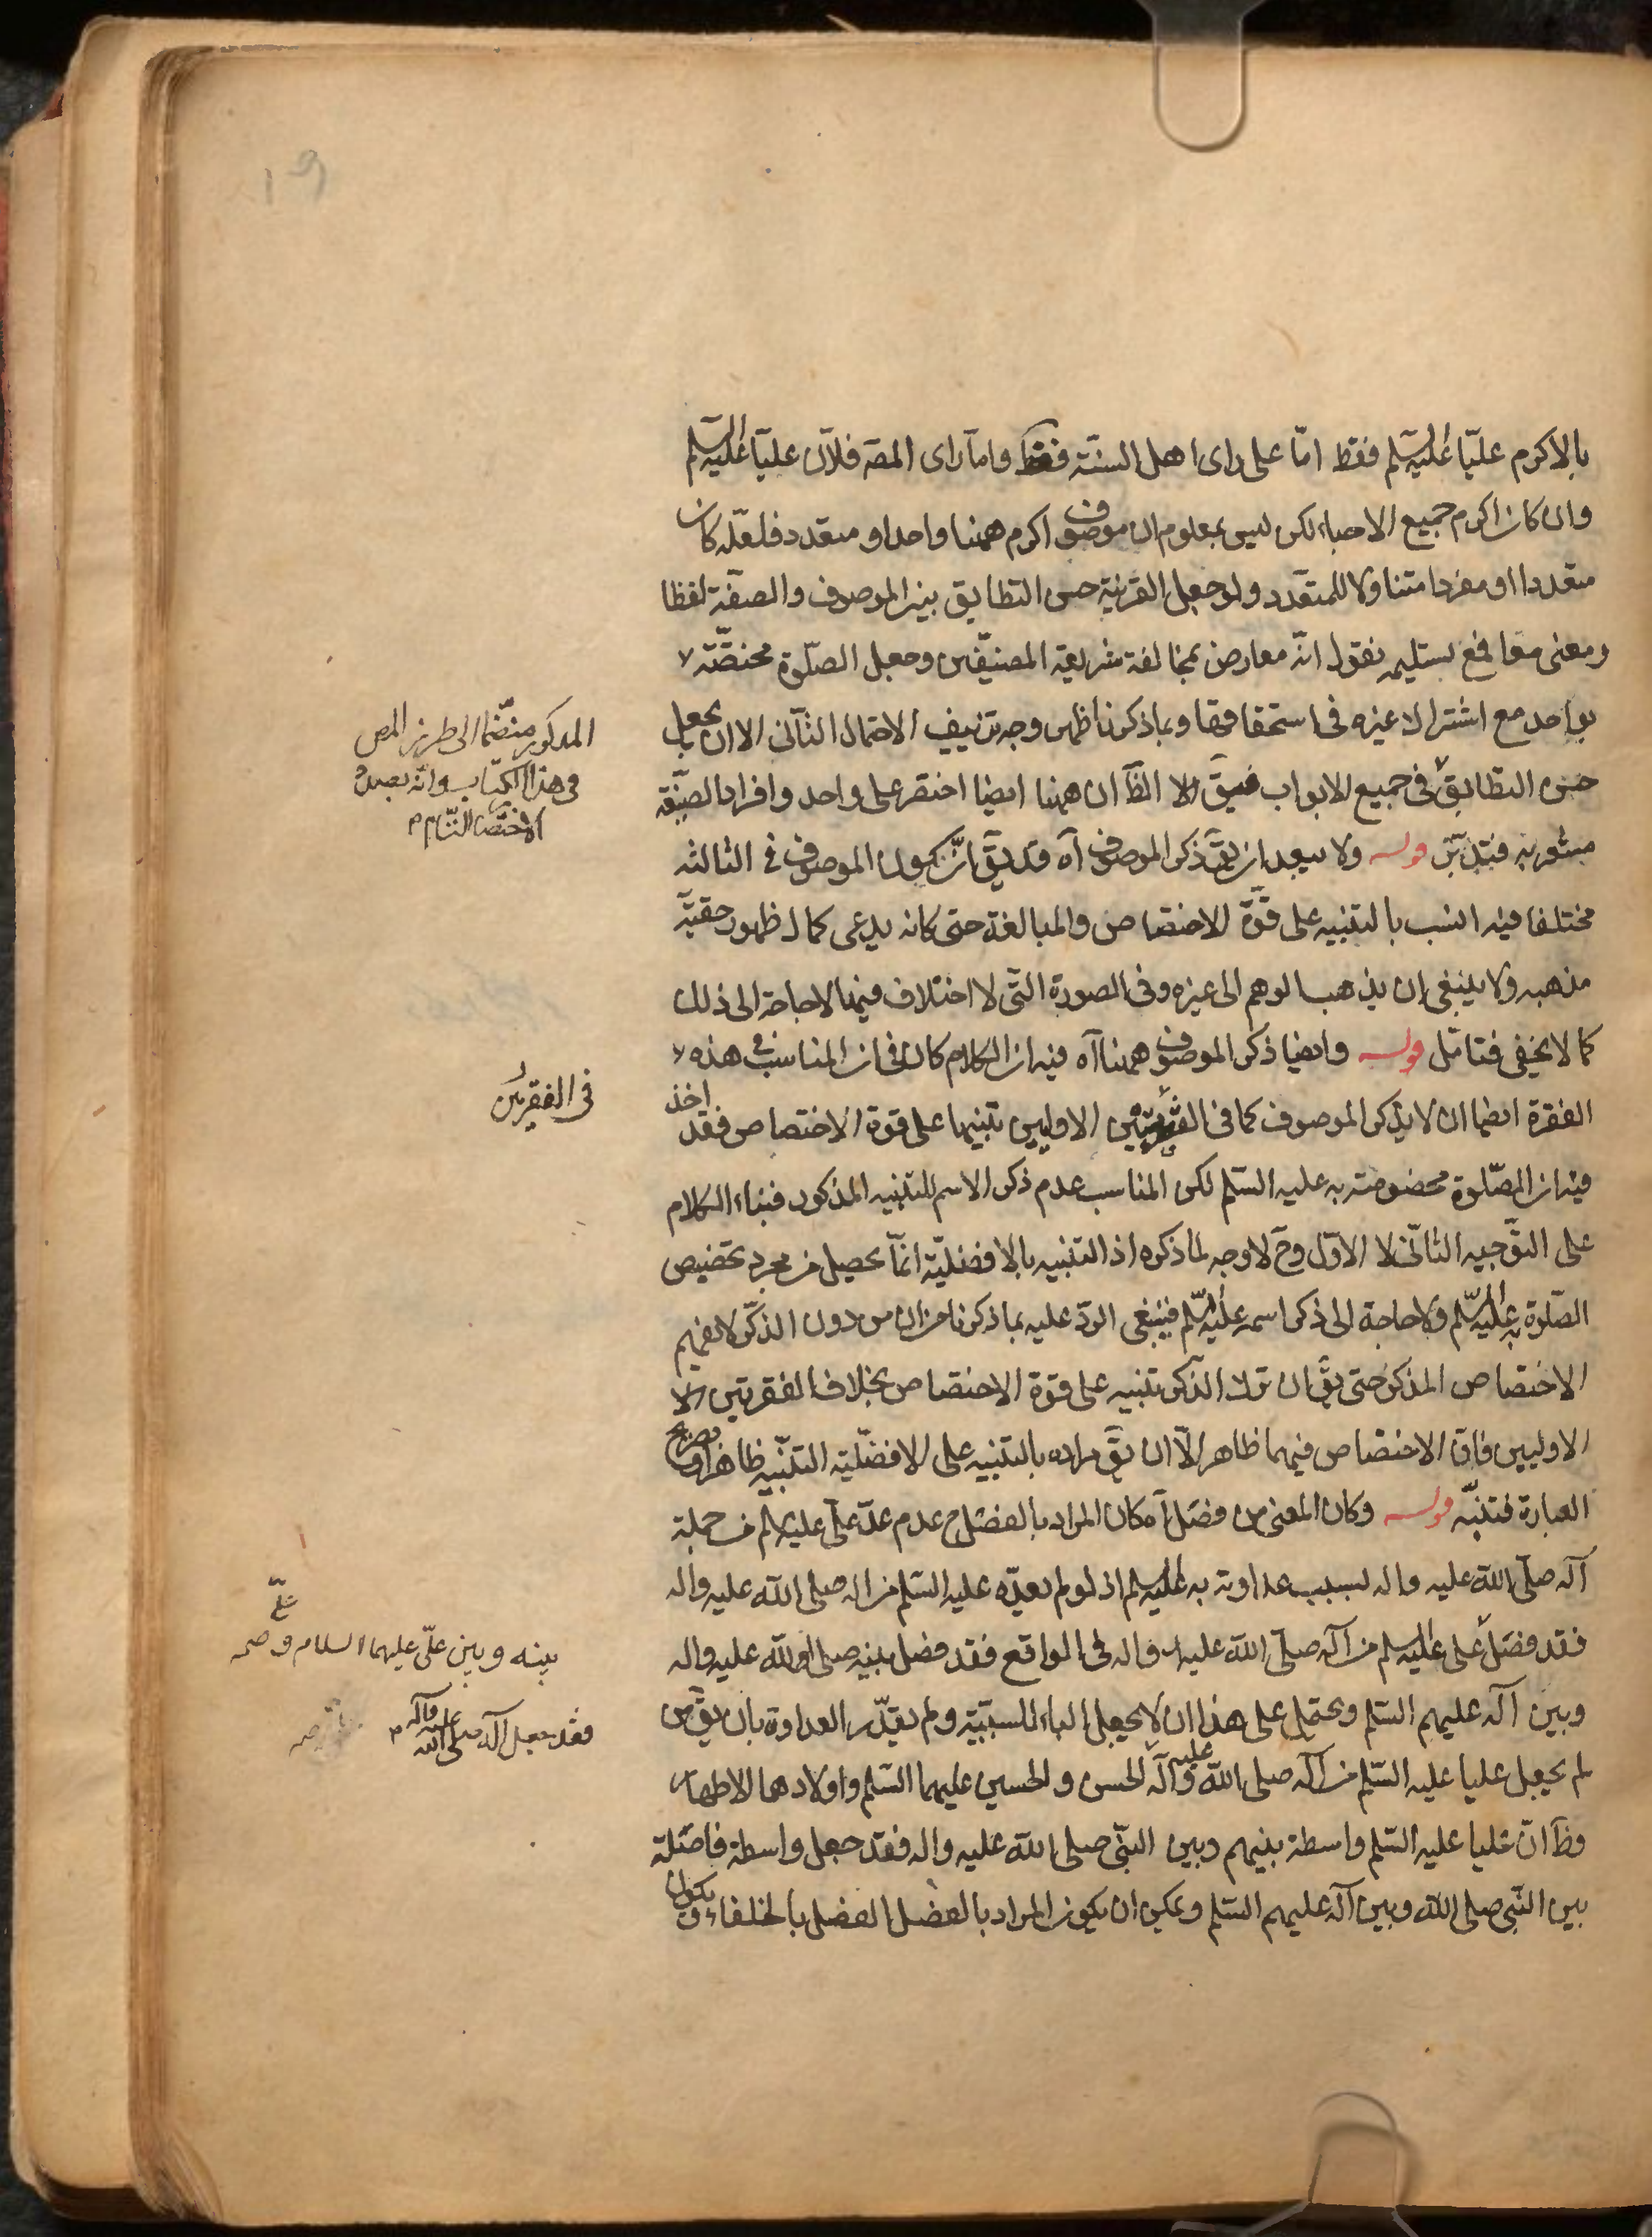 ١٩
بالاكرم عليّا عليه السّلم فقط امّا على راى اهل السنّة فقط وامّا راى المصّ فلانّ عليّا عليه السّلم
وان كان اكرم جميع الاحباء لكن ليس بمعلوم ان موصوف اكرم ههنا واحد او متعدد فلعلّه كان
متعددا او مفردا متناولا للمتعدّد ولو جعل القرينة حسن التطابق بين الموصوف والصفة لفظا
ومعنى معا فمع تسليمه نقول انّه معارض بمخالفة شريعة المصنّفين وجعل الصّلوة مختصّة
بواحد مع اشتراك غيره فى استحقاقها وبما ذكرنا ظهر وجه تزييف الاحتمال الثانى الا ان يجعل
حسن التطابق فى جميع الابواب الا الظّ ان ههنا ايضا اختصر على واحد وافراد الصّفة
مشعر به فتدبّر قوله ولا يبعد ان يقّ ذكر الموصوف آه قد يقّ انّ كون الموصوف فى الثالثة
مختلفا فيه انسب بالتنبيه على قوّة الاختصاص والمبالغة حتى كانه يدعى كمال ظهور حقيّة
مذهبه ولا ينبغى ان يذهب الوهم الى غيره وفى الصورة التى لا اختلاف فيها لا حاجة الى ذلك
كما لا يخفى فتامّل قوله وايضا ذكر الموصوف ههنا آه فيه ان الكلام كان فى ان المناسب فى هذه
الفقرة ايضا ان لا يذكر الموصوف كما فى الاوليين تنبيها على قوة الاختصاص فقد اخذ
فيه ان الصّلوة مخصوصة به عليه السّلم لكن المناسب عدم ذكر الاسم للتنبيه المذكور فبناء الكلام
على التوّجيه الثانى لا الاوّل وحّ لا وجه لما ذكره اذ التنبيه بالافضليّة انّما يحصل من مجرد تخصيص
الصّلوة به عليه السّلم ولا حاجة الى ذكر اسمه عليه السّلم فينبغى الردّ عليه بما ذكرنا من ان من دون الذكر لا يفهم
الاختصاص المذكور حتى يقّ ان ترك الذكر تنبيه على قوة الاختصاص بخلاف الفقرتين
الاوليين فانّ الاختصاص فيهما ظاهر الّا ان يقّ مراده بالتنبيه على الافضليّة التنبيه ظاهرا وصريح
العبارة فتنبّه قوله وكان المعنى من فصل آه كان المراد بالفصل ح عدم عدّ علىّ عليه السلم من جملة
آله صلّى الله عليه واله بسبب عداوته به عليه السلم اذ لو لم يعدّه عليه السّلم من اله صلى الله عليه واله
فقد فصل على عليه السلم من آله صلّى الله عليه واله فى الواقع فقد فصل بينه صلى الله عليه واله
وبين آله عليهم السّلم ويحتمل على هذا ان لا يجعل الباء للسببيّة ولم يقدّر العداوة بان يقّ من
لم يجعل عليا عليه السّلم من آله صلى الله عليه وآله الحسن والحسين عليهما السّلم واولادهما الاطهار
وظّ انّ عليا عليه السّلم واسطة بينهم وبين النبّى صلى الله عليه واله فقد جعل واسطة فاصلة
بين النّبى صلى الله وبين آله عليهم السّلم ويمكن ان يكون المراد بالفصل الفصل بالخلفاء ويكون
المذكور منضّما الى طرز المص
فى هذا الكتاب وانّه بصدد
الاختصا التّام
فى الفقرتين
بينه وبين علىّ عليهما السلام وصح
فقد جعل آله صلى الله عليه وآله